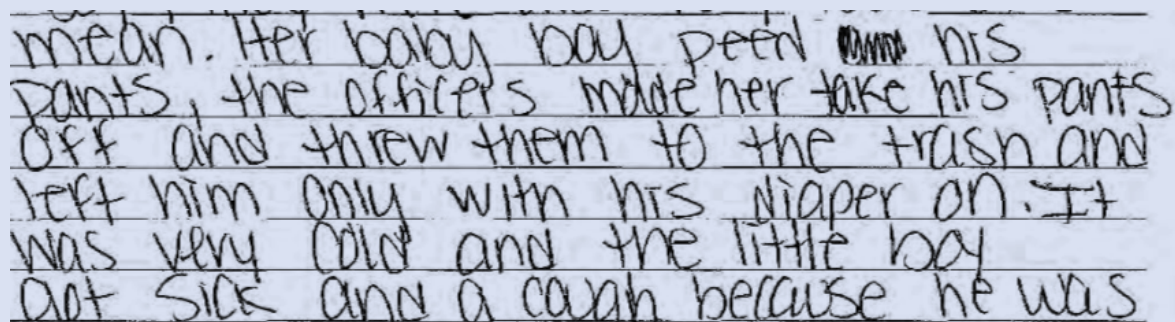 mean. Her baby boy peed his
pants, the officers made her take his pants
off and threw them to the trash and
left him only with his diaper on. It
was very cold and the little boy
got sick and a cough because he was